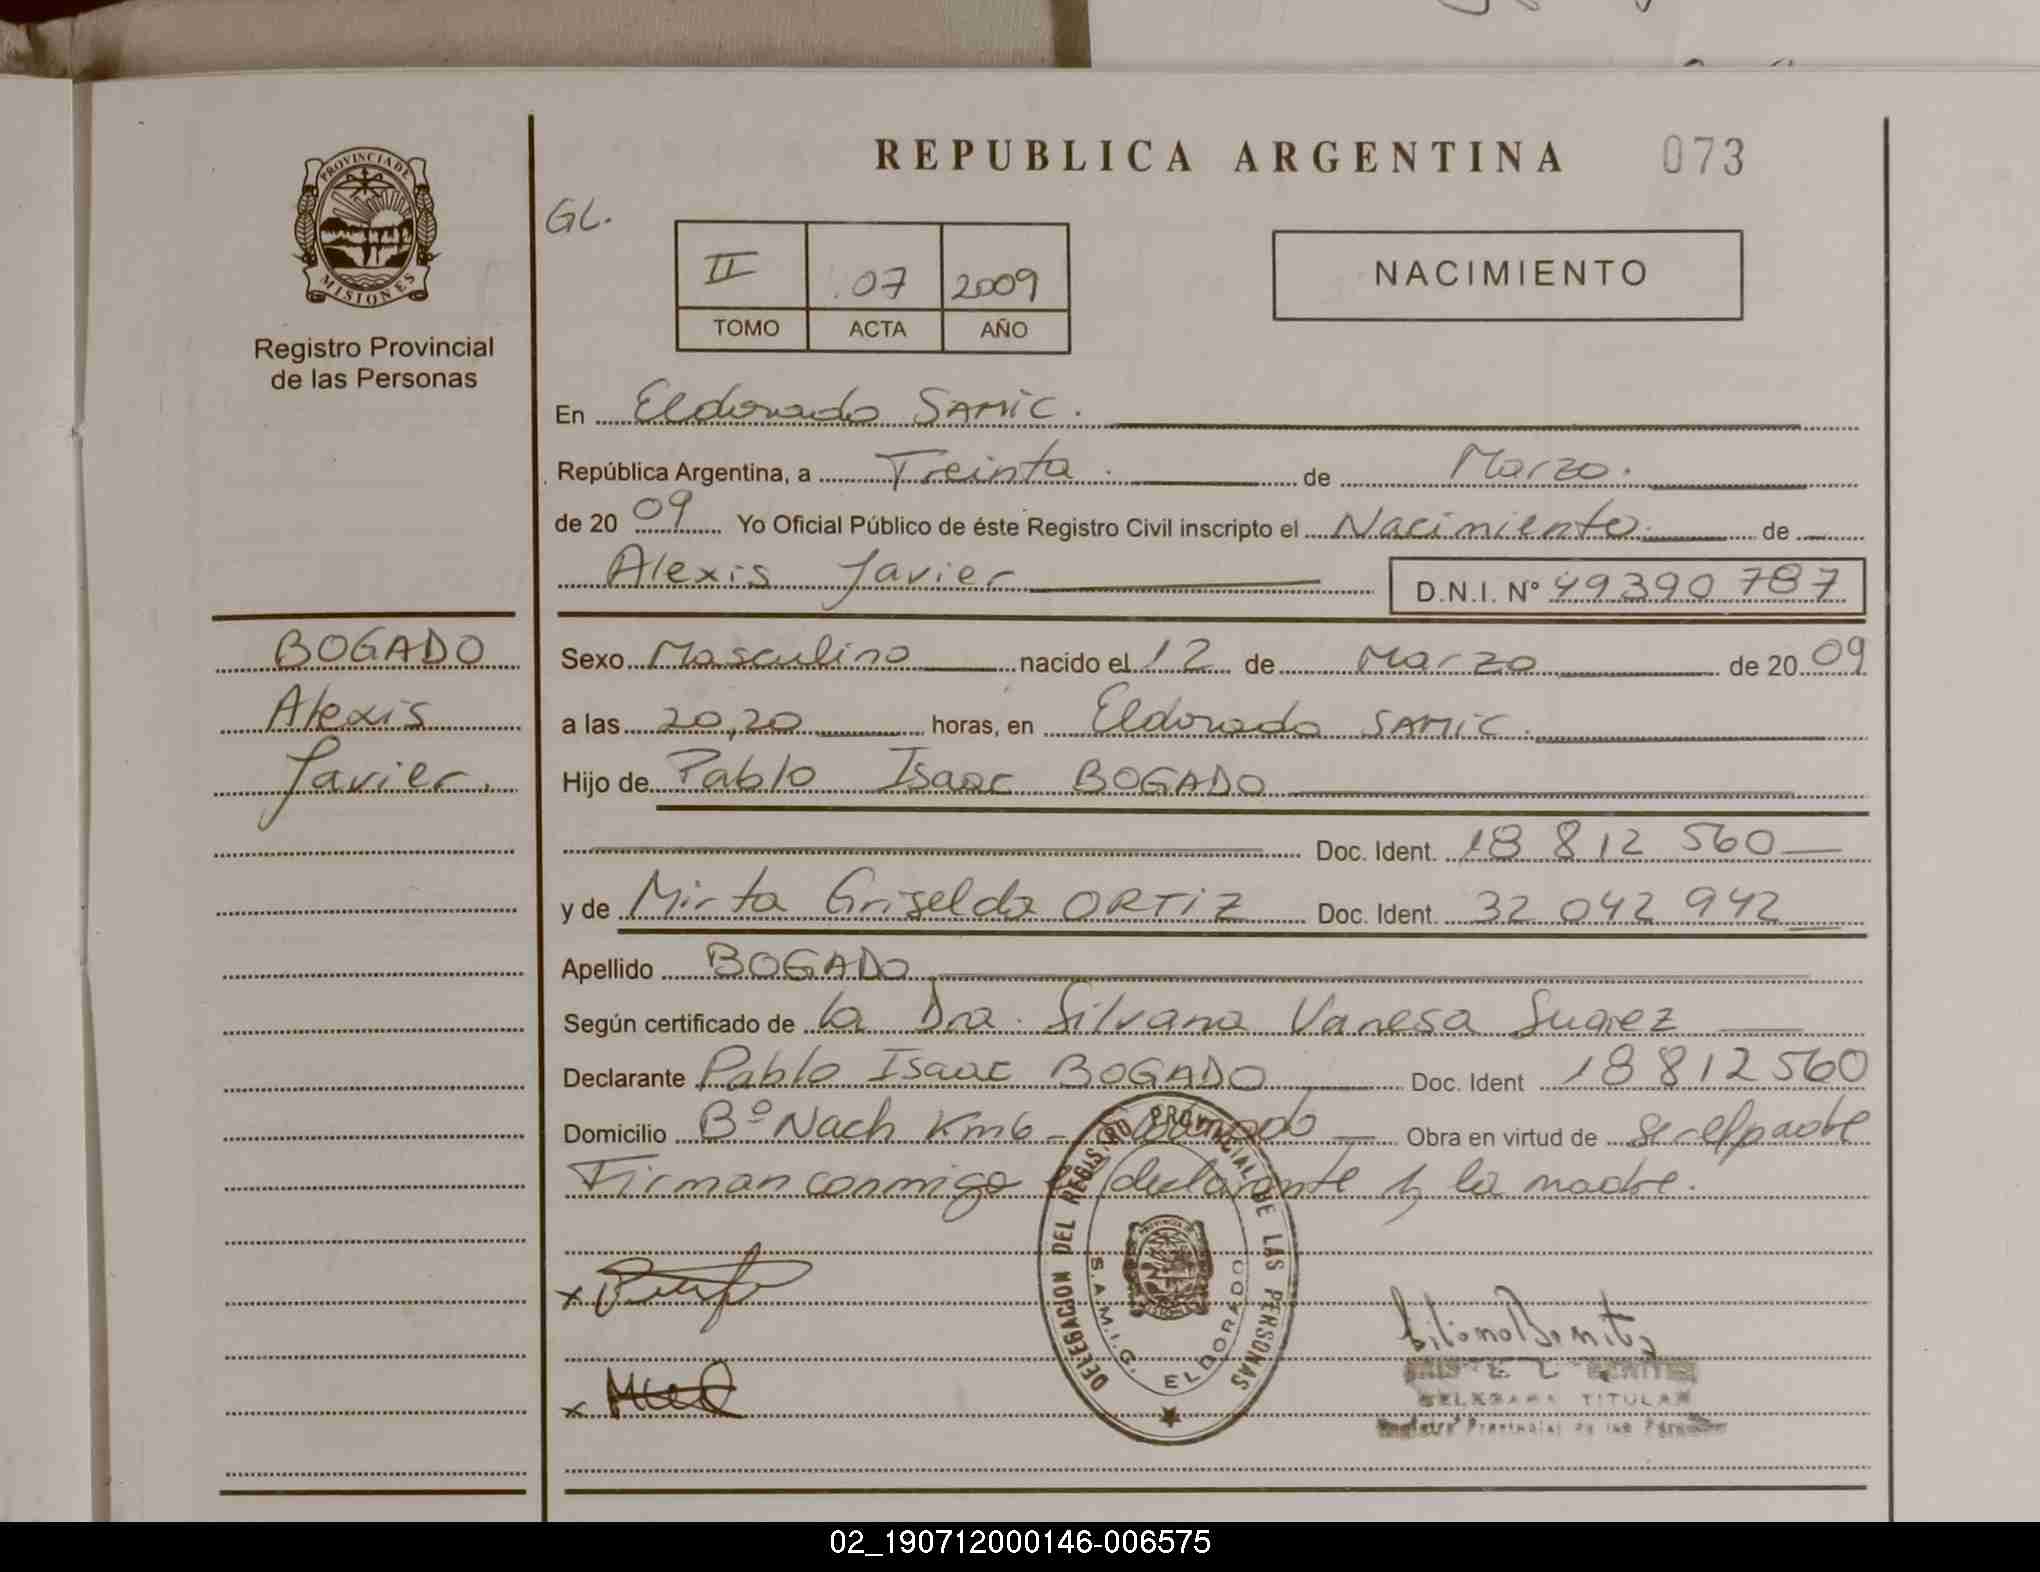 REPUBLICA ARGENTINA 073
PROVINCIA DE
MISIONES
Registro Provincial
de las Personas
GL.
II .07 2009
TOMO ACTA AÑO
NACIMIENTO
En Eldorado SAMIC.
República Argentina, a Treinta. de Marzo.
de 20 09 Yo Oficial Público de éste Registro Civil inscripto el Nacimiento. de
Alexis Javier D.N.I. Nº 49390 787
BOGADO
Alexis
Javier.
Sexo Masculino nacido el 12 de Marzo de 20 09
a las 20,20 horas, en Eldorado SAMIC.
Hijo de Pablo Isaac BOGADO
Doc. Ident. 18 812 560
y de Mirta Griselda ORTIZ Doc. Ident. 32 042 942
Apellido BOGADO
Según certificado de la Dra. Silvana Vanesa Suarez
Declarante Pablo Isaac BOGADO Doc. Ident 18812560
Domicilio Bº Nach Km6 - Obra en virtud de ser el padre
Firman conmigo el declarante y la madre.
DELEGACION DEL REGISTRO PROVINCIAL DE LAS PERSONAS
S.A.M.I.C. ELDORADO
DELEGADA TITULAR
Registro Provincial de las Personas
02_190712000146-006575